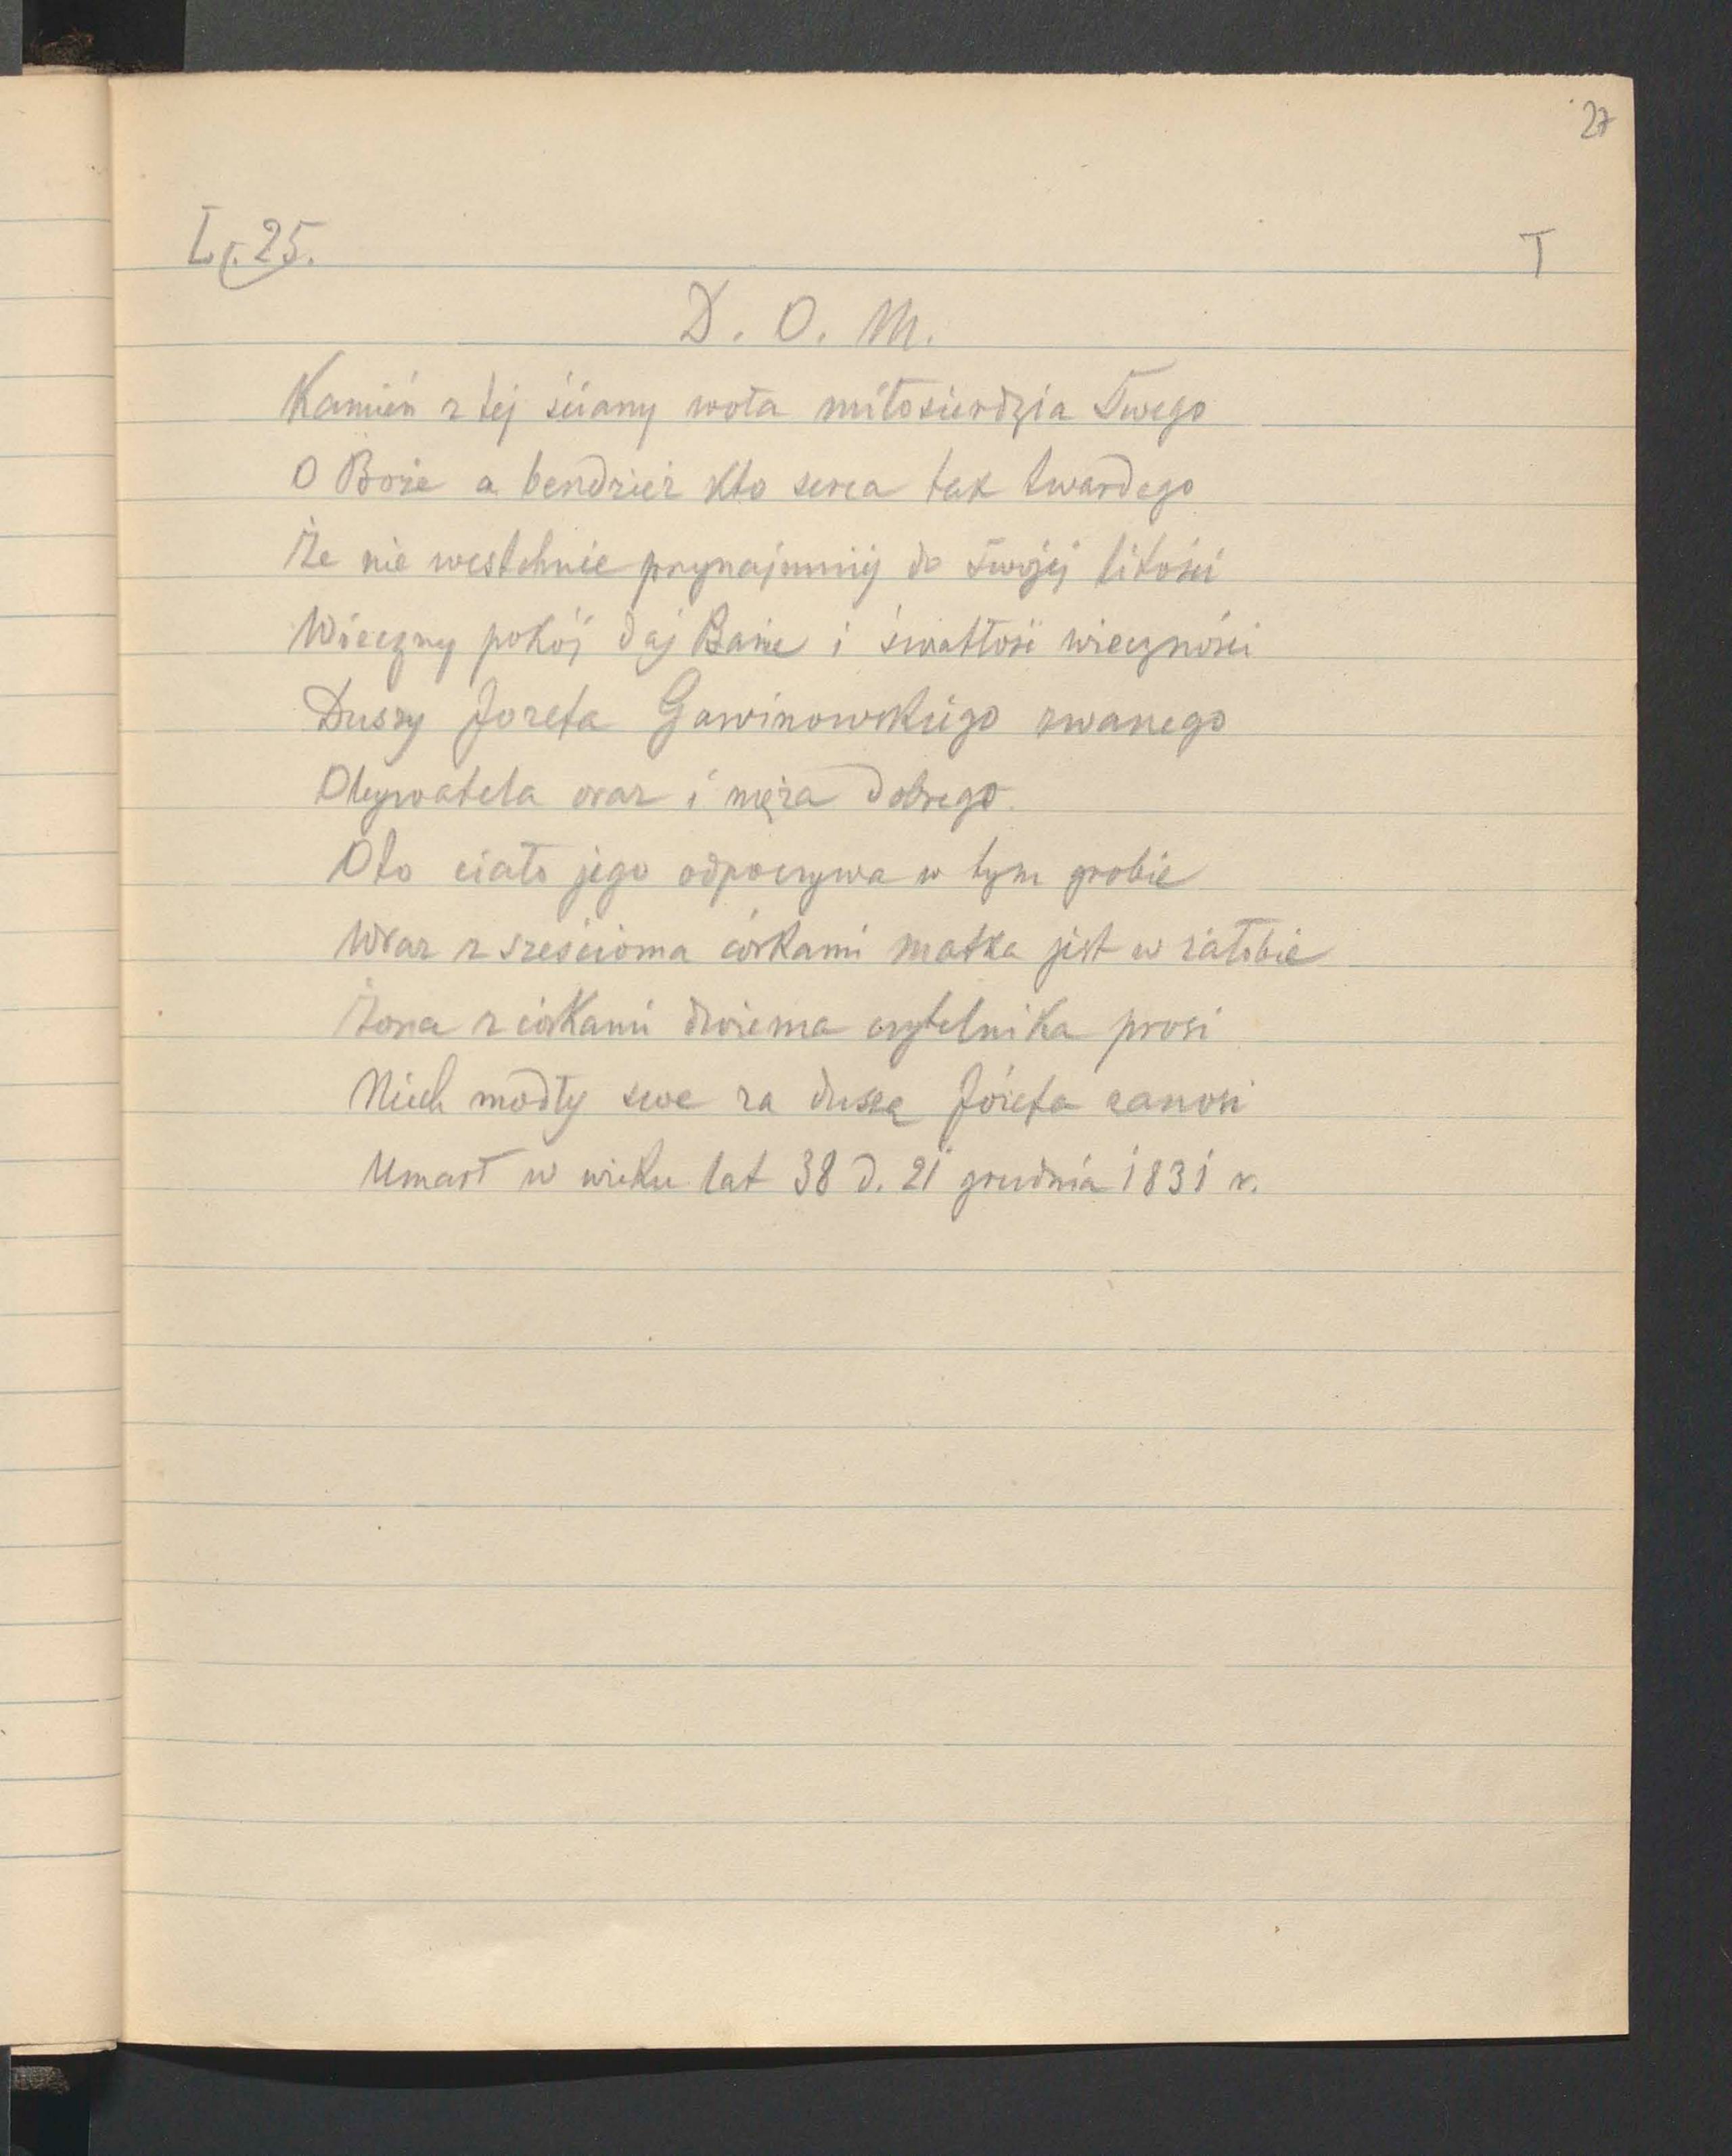 27
L. 25.
T
D. O. M.
Kamień z tej ściany woła miłosierdzia Twego
O Boże a bendzież kto serca tak twardego
Że nie westchnie przynajmniej do twojej litości
Wieczny pokój daj Panie i światłość wieczności
Duszy Jozefa Gawinowskiego zwanego
Obywatela oraz i męża dobrego.
Oto ciało jego odpoczywa w tym grobie
Wraz z sześcioma córkami matka jest w żałobie
Żona z córkami dwiema czytelnika prosi
Niech modły swe za duszę Józefa zanosi
Umarł w wieku lat 38 d. 21 grudnia 1831 r.